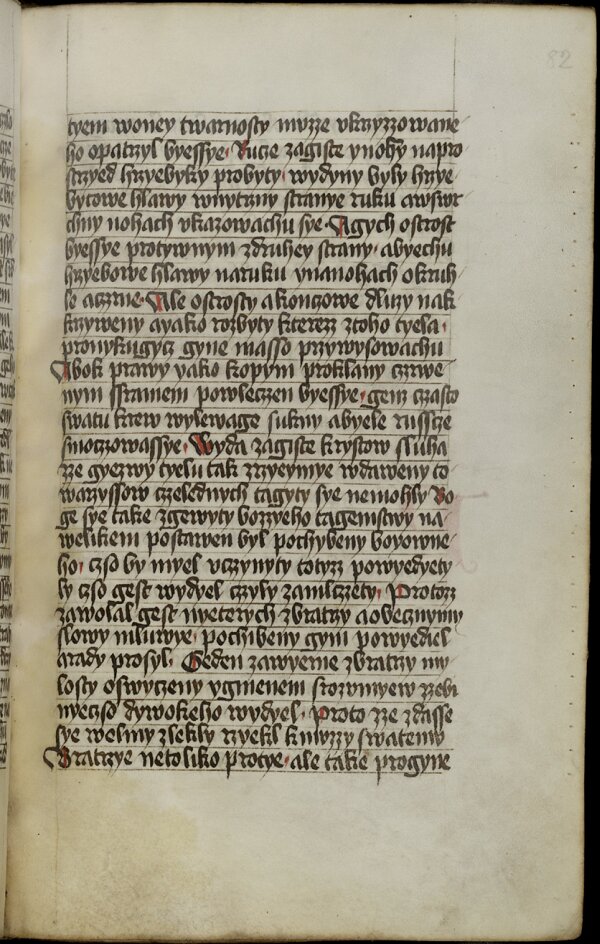 82
tyem woney twarnosty muzze vkrzyzzowane
ho opatrzyl byessye Rucie zagiste ynohy napro
strzyed hrzyebyky probyty wydyny byly hrzye
bykowe hlawy wnytrzny stranye ruku a wswr
chny nohach vkazowachu sye Agych ostrost
byessye protywnym zdruhey strany abyechu
hrzyebowe hlawy naruku ynanohach okruh
le aczrne Ale ostrosty akonczowe dluzy nak
krzyweny ayako rozbyty kterezz ztoho tyela
pronykugycz gyne masso przywysowachu
Abok prawy yako kopym proklany czrwe
nym ssramem powleczen byessye gemz czasto
swatu krew wylewage sukny abyele russye
smoczowassye Wyda zagiste krystow sluha
zze gyezwy tyelu tak zrzyeymye wdaweny to
warzyssow czelednych tagyty sye nemohly Bo
ge sye take zgewyty bozzyeho tagemstwy na
welikem postawen byl pochybeny boyowne
ho czso by myel vczynyty totyzz powyedyety
ly czso gest wydyel czyly zamlczety Protozz
zawolal gest nyeterych zbratrzy aobecznymy
slowy mluwye pochibeny gym powyediel
arady prosyl Geden zawyernie zbratrzy my
losty oswyczeny ygmenem srozumyew zzebi
nyeczso dywokeho wydyel Proto zze zdasse
sye welmy zlekly rzyekl kmuzzy swatemu
Bratrzye netoliko protye ale take progyne